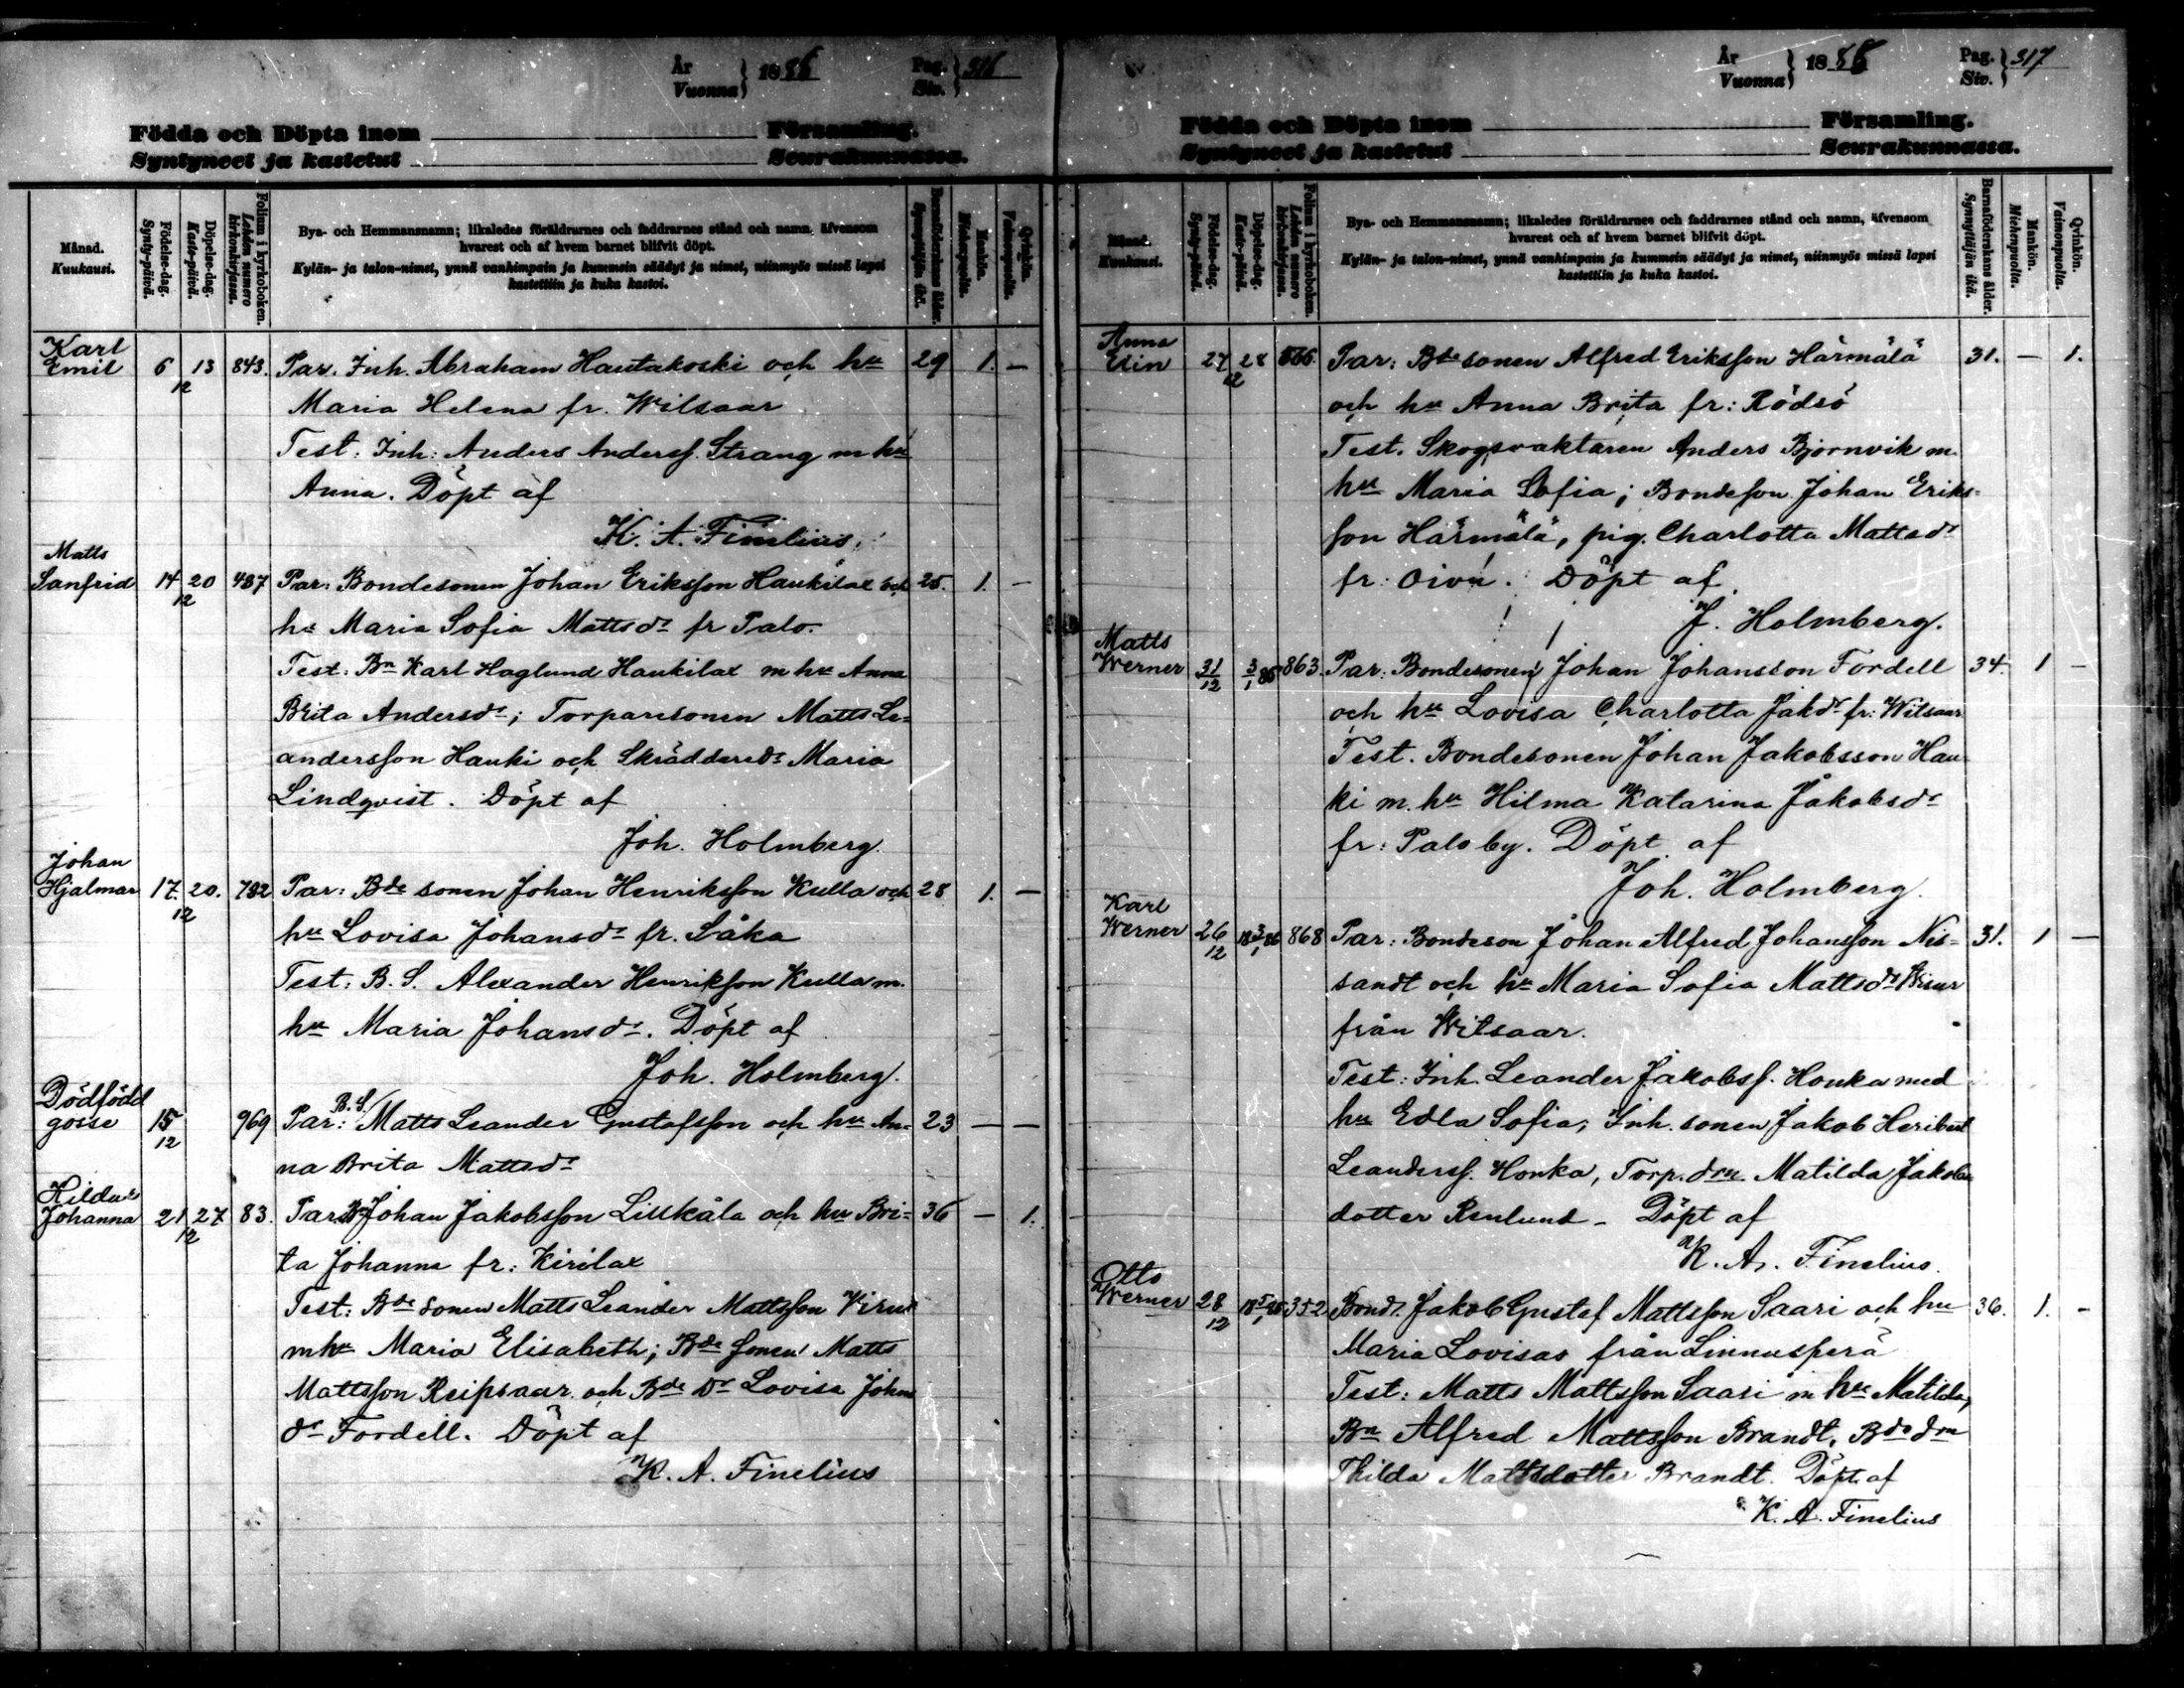 År
Vuonna } 1886
Pag.
Siv. } 316
Födda och Döpta inom Församling.
Syntyneet ja kastetut Seurakunnassa.
Månad.
Kuukausi.
Födelse-dag.
Synty-päivä.
Döpelse-dag.
Kaste-päivä.
Folium i kyrkoboken.
Lehden numero kirkonkirjassa.
Bya- och Hemmansnamn; likaledes föräldrarnes och faddrarnes stånd och namn, äfvensom
hvarest och af hvem barnet blifvit döpt.
Kylän- ja talon-nimet, ynnä vanhimpain ja kummein säädyt ja nimet, niinmyös missä lapsi
kastettiin ja kuka kastoi.
Barnaföderskans ålder.
Synnyttäjän ikä.
Mankön.
Miehenpuolta.
Qvinkön.
Vaimonpuolta.
Karl
Emil 6 13 843. Par. Inh. Abraham Hautakoski och hu 29 1. —
12
Maria Helena fr. Witsaar
Test: Inh: Anders Anderss. Strang m hu
Anna. Döpt af
K. A. Finelius
Matts
Sanfrid 14 20 487 Par: Bondesonen Johan Eriksson Haukilax och 25. 1. —
12
hu Maria Sofia Mattsdr fr Palo.
Test: Bn Karl Haglund Haukilax m hu Anna
Brita Andersdr; Torparesonen Matts Le-
andersson Hauki och Skräddaredr Maria
Lindqvist. Döpt af
Joh. Holmberg.
Johan
Hjalmar 17. 20. 782 Par: Bde sonen Johan Henriksson Kulla och 28 1. —
12
hu Lovisa Johansdr fr. Såka
Test: B. S. Alexander Henriksson Kulla m.
hu Maria Johansdr. Döpt af
Joh. Holmberg.
Dödfödd
gosse 15 969 Par: B. S. Matts Leander Gustafsson och hu An- 23 — —
12
na Brita Mattsdr
Johanna 21 27 83. Par: Johan Jakobsson Liukåla och hu Bri- 36 — 1.
12
ta Johanna fr: Kirilax
Test: Bde sonen Matts Leander Mattsson
m hu Maria Elisabeth; Bde sonen Matts
Mattsson Reipsaar och Bde Dr Lovisa Johns
dr Fordell. Döpt af
K. A. Finelius
År
Vuonna } 1886
Pag.
Siv. } 317
Födda och Döpta inom Församling.
Syntyneet ja kastetut Seurakunnassa.
Månad.
Kuukausi.
Födelse-dag.
Synty-päivä.
Döpelse-dag.
Kaste-päivä.
Folium i kyrkoboken.
Lehden numero kirkonkirjassa.
Bya- och Hemmansnamn; likaledes föräldrarnes och faddrarnes stånd och namn, äfvensom
hvarest och af hvem barnet blifvit döpt.
Kylän- ja talon-nimet, ynnä vanhimpain ja kummein säädyt ja nimet, niinmyös missä lapsi
kastettiin ja kuka kastoi.
Barnaföderskans ålder.
Synnyttäjän ikä.
Mankön.
Miehenpuolta.
Qvinkön.
Vaimonpuolta.
Anna
Elin 27 28 566. Par: Bde sonen Alfred Eriksson Härmälä 31. — 1.
12
och hu Anna Brita fr: Rödsö
Test. Skogsvaktaren Anders Bjornvik m.
hu Maria Sofia; Bondeson Johan Eriks-
son Härmälä, pig. Charlotta Mattsdr
fr: Oivu. Döpt af
J. Holmberg.
Matts
Werner 31/12 3/1 86 863. Par: Bondesonen Johan Johansson Fordell 34. 1 —
och hu Lovisa Charlotta Jakdr fr: Witsaar
Test. Bondesonen Johan Jakobsson Hau-
ki m. hu Hilma Katarina Jakobsdr
fr: Palo by. Döpt af
Joh. Holmberg.
Karl
Werner 26/12 18 3/1 86 868 Par: Bondeson Johan Alfred Johansson Nis- 31. 1 —
sandt och hu Maria Sofia Mattsdr
från Witsaar.
Test: Inh. Leander Jakobss. Honka med
hu Edla Sofia; Inh. sonen Jakob Heribert
Leanderss. Honka, Torp. drn. Matilda Jakobs
dotter Renlund – Döpt af
K. A. Finelius.
Otto
Werner 28/12 352 Bond. Jakob Gustaf Mattsson Saari och hu 36. 1. —
Maria Lovisas från Linnusperä
Test: Matts Mattsson Saari m hu Matilda,
Bn Alfred Mattsson Brandt, Bde drn
Thilda Mattsdotter Brandt. Döpt af
K. A. Finelius